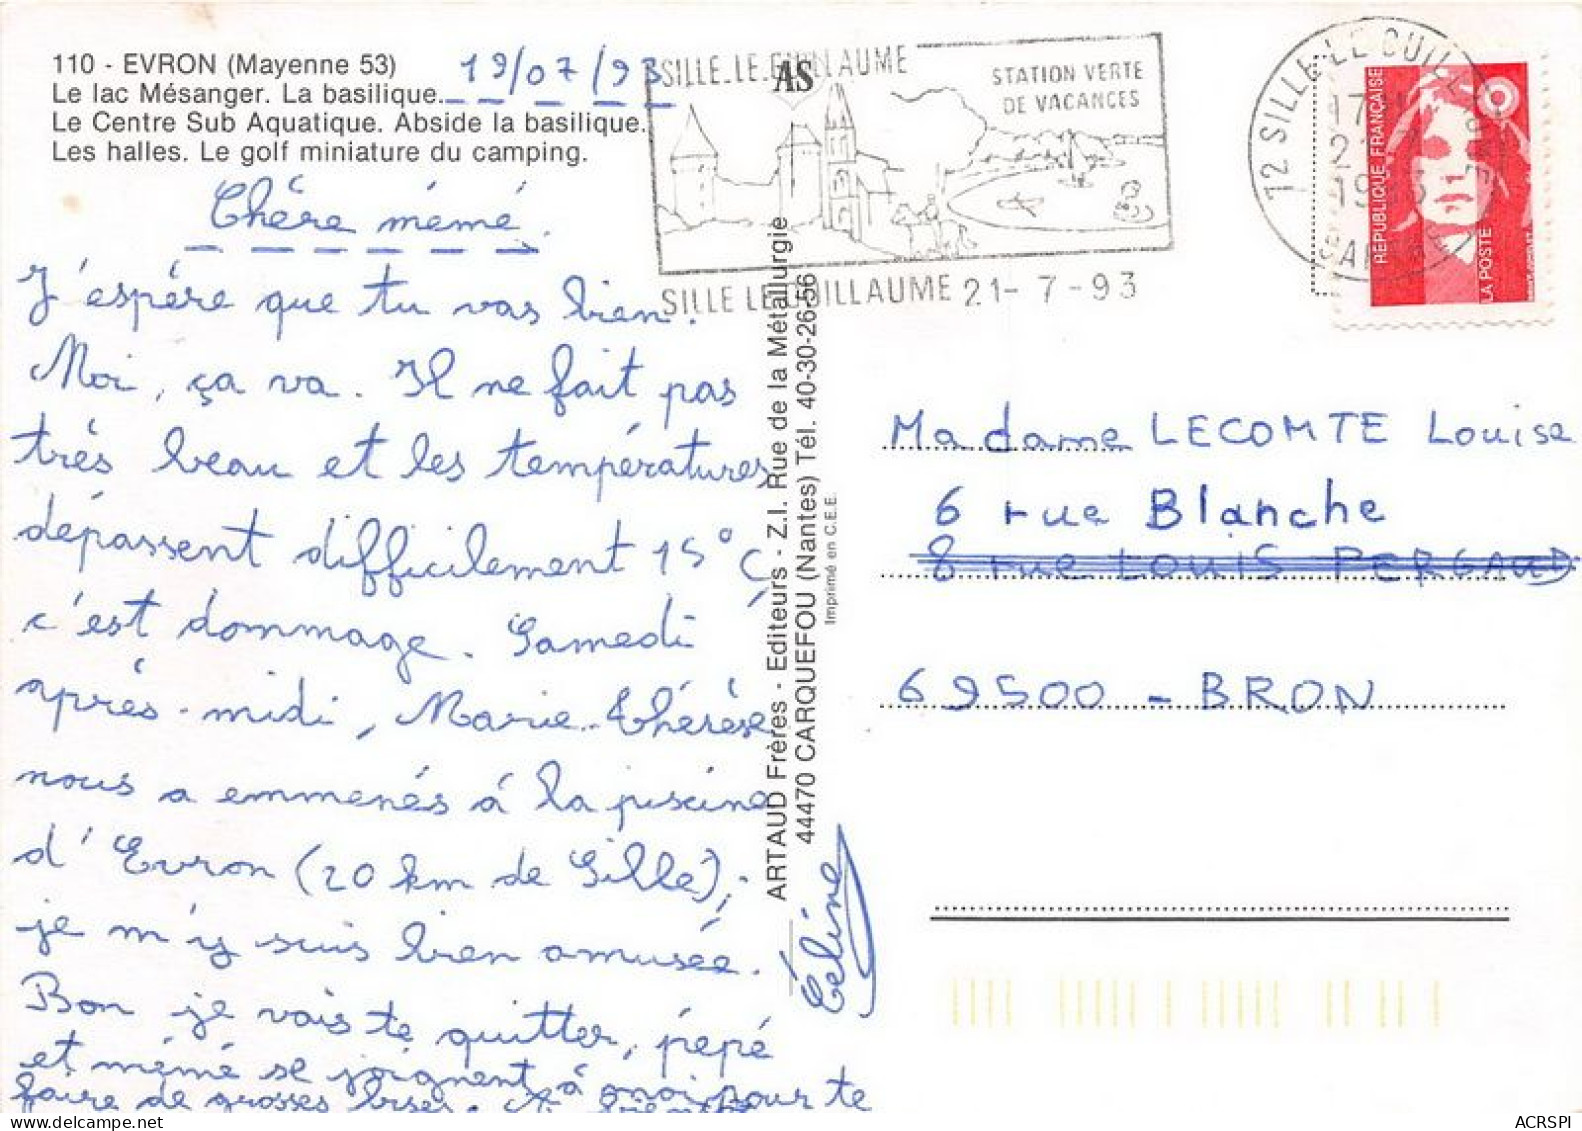 110 - EVRON (Mayenne 53)
Le lac Mésanger. La basilique.
Le Centre Sub Aquatique. Abside la basilique.
Les halles. Le golf miniature du camping.
19/07/93
Chère mémé.
J'éspére que tu vas bien.
Moi, ça va. Il ne fait pas
très beau et les températures
dépassent difficilement 15°C,
c'est dommage. Samedi
après-midi, Marie-Thérèse
nous a emmenés à la piscine
d'Evron (20 km de Sillé);
je m'y suis bien amusée.
Bon je vais te quitter, pépé
et mémé se joignent à moi pour te
faire de grosses bises. A bientôt
Céline
ARTAUD Frères - Editeurs - Z.I. Rue de la Métallurgie
44470 CARQUEFOU (Nantes) Tél. 40-30-26-56
Imprimé en C.E.E.
SILLE-LE-GUILLAUME
AS
STATION VERTE
DE VACANCES
SILLE LE GUILLAUME 21-7-93
72 SILLE-LE GUILLAUME
17H
21-7
1993
SARTHE
RÉPUBLIQUE FRANÇAISE
LA POSTE
Madame LECOMTE Louise
6 rue Blanche
8 rue LOUIS PERGAUD
69500 - BRON
ACRSPI